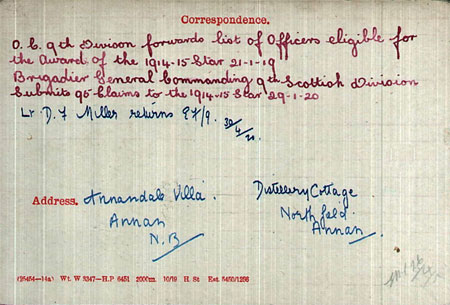 Correspondence.
O. C. 9th Division forwards list of Officers eligible for
the Award of the 1914-15 Star 21-1-19
Brigadier General Commanding 9th Scottish Division
Submits 95 Claims to the 1914-15 Star 29-1-20
Lr D. F Miller returns EF/9. 30/4/20.
Address.
Annandale Villa.
Annan
N. B
Distillery Cottage
Northfield.
Annan.
(25454—14a) Wt. W 5347—H.P 6451 2000m. 10/19 H. St Est 5450/1256